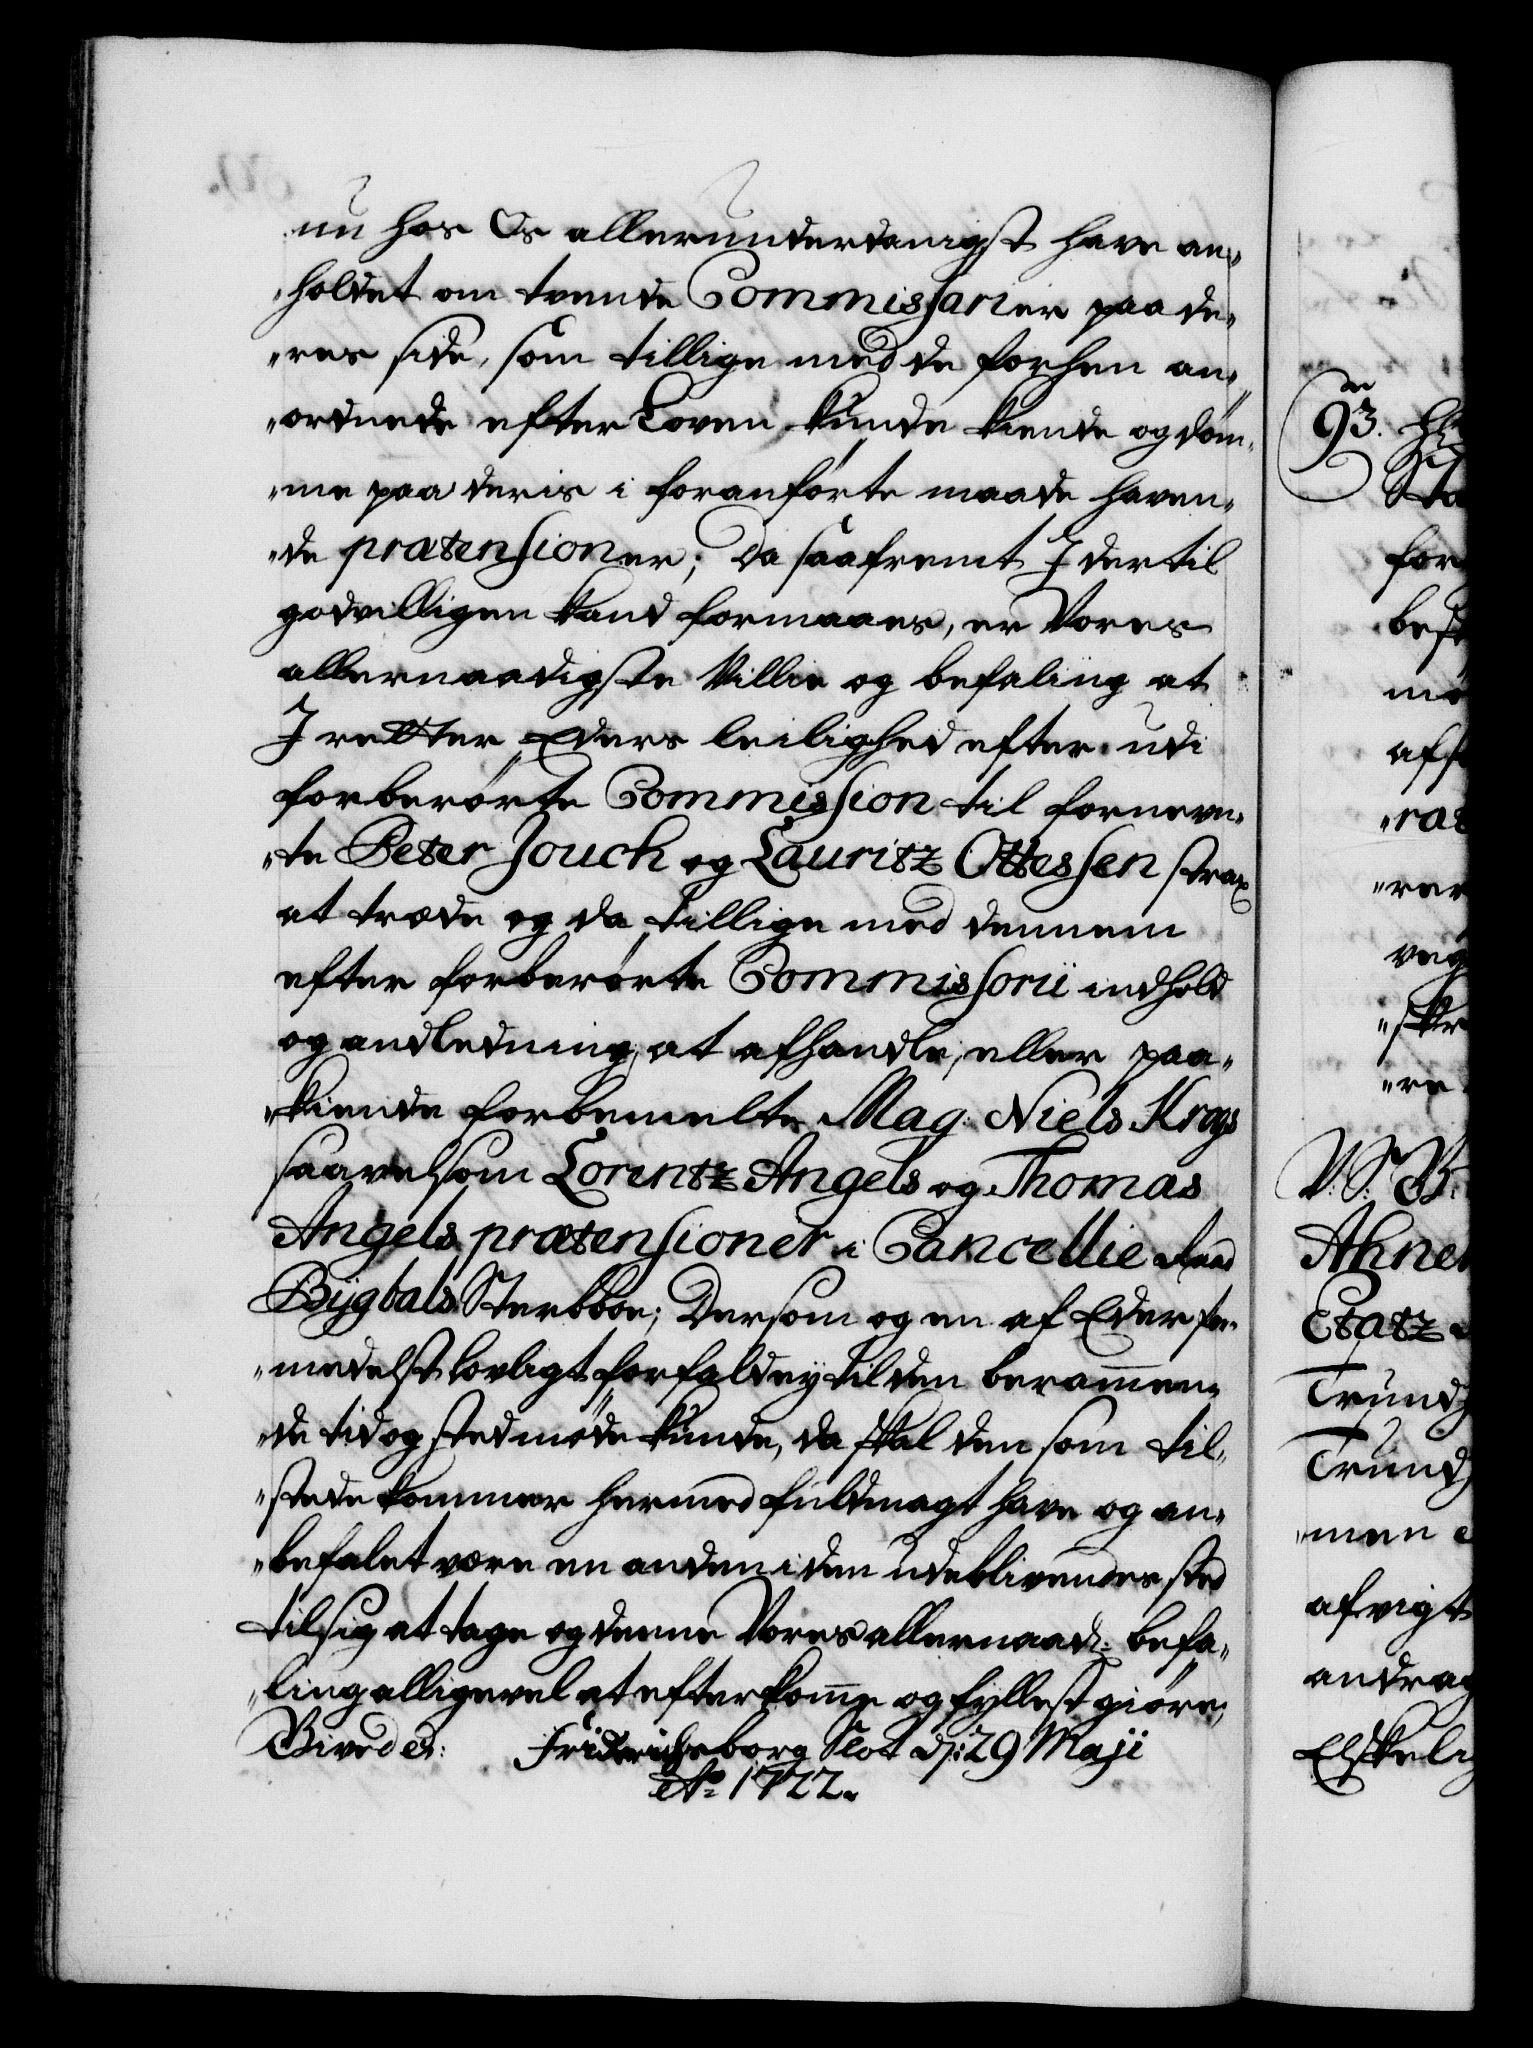 nu hos Os allerunderdanigst have an„
„holdet om tvende Commissarier paa de„
„res side, som tillige med de forhen an„
„ordnede efter Loven kunde kiende og döm„
„me paa deris i foranförte maade haven„
„de prætensioner; Da saafremt I dertil
godvilligen kand formaaes, er Vores
allernaadigste Villie og befaling at
I retter Eders leilighed efter udi
forberörte Commission til fornevn„
„te Peter Jouch og Lauritz Ottessen strax
at træde og da tillige med dennem
efter forberörte Commissorii indhold
og andledning, at afhandle, eller paa„
„kiende forbemelte Mag: Niels Krogs
saavelsom Lorentz Angels og Thomas
Angels prætensioner i Cancellie Raad
Bygbals Sterbboe; Dersom og en af Eder for„
„medelst lovligt forfald ey til den berammen„
„de tid og sted möde kunde, da skal den som til„
„stede kommer hermed fuldmagt have og an„
„befalet være en anden i den udeblivendes sted
til sig at tage og denne Vores allernaad: befa„
„ling alligevel at efterkomme og fyllest giöre,
Bived er: Friderichsborg Slot d: 29 Maji
Ao 1722.
93.
Sta
for
mö
„ras
„rer
„re
V: S: B:
Ahne
Etatz
Trundh
Trundh
„men
afvigt
andrag
Elskelig